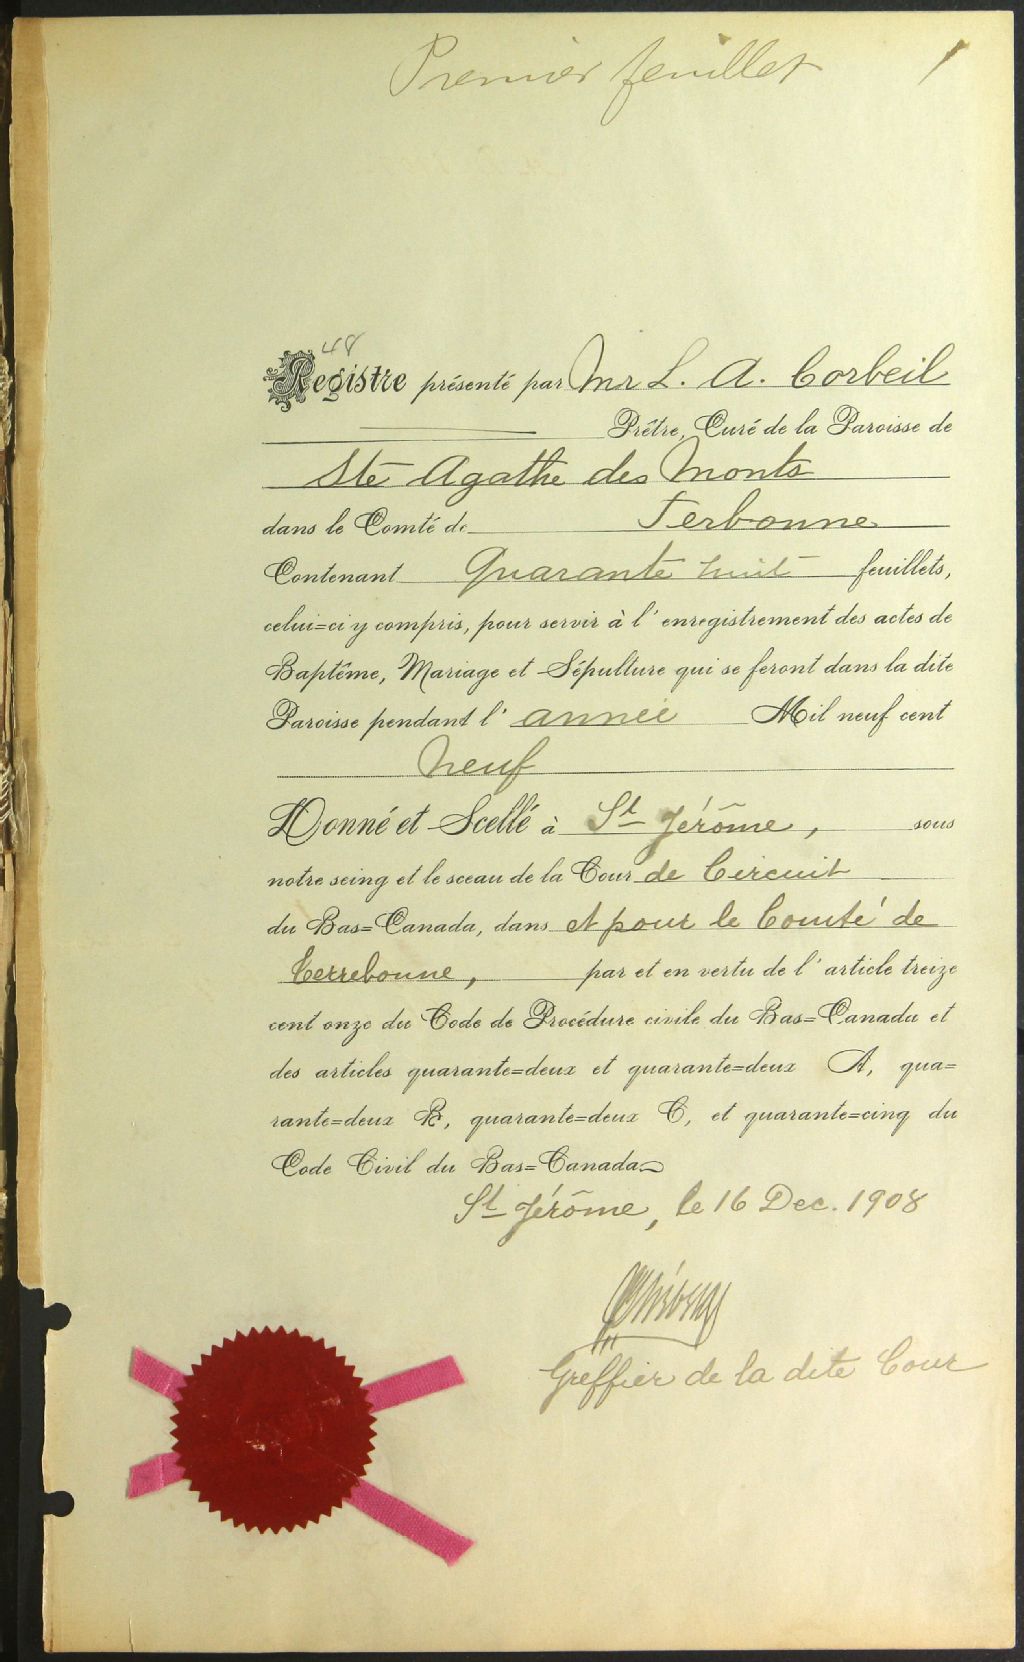 Premier feuillet 1
48
Registre présenté par Mr L. A. Corbeil
Prêtre, Curé de la Paroisse de
Ste Agathe des Monts
dans le Comté de Terbonne
Contenant Quarante huit feuillets,
celui=ci y compris, pour servir à l'enregistrement des actes de
Baptême, Mariage et Sépulture qui se feront dans la dite
Paroisse pendant l'année Mil neuf cent
neuf
Donné et Scellé à St Jérôme, sous
notre seing et le sceau de la Cour de Circuit
du Bas=Canada, dans et pour le Comté de
Terrebonne, par et en vertu de l'article treize
cent onze du Code de Procédure civile du Bas=Canada et
des articles quarante=deux et quarante=deux A, qua=
rante=deux B, quarante=deux C, et quarante=cinq du
Code Civil du Bas=Canada
St Jérôme, le 16 Dec. 1908
Greffier de la dite Cour